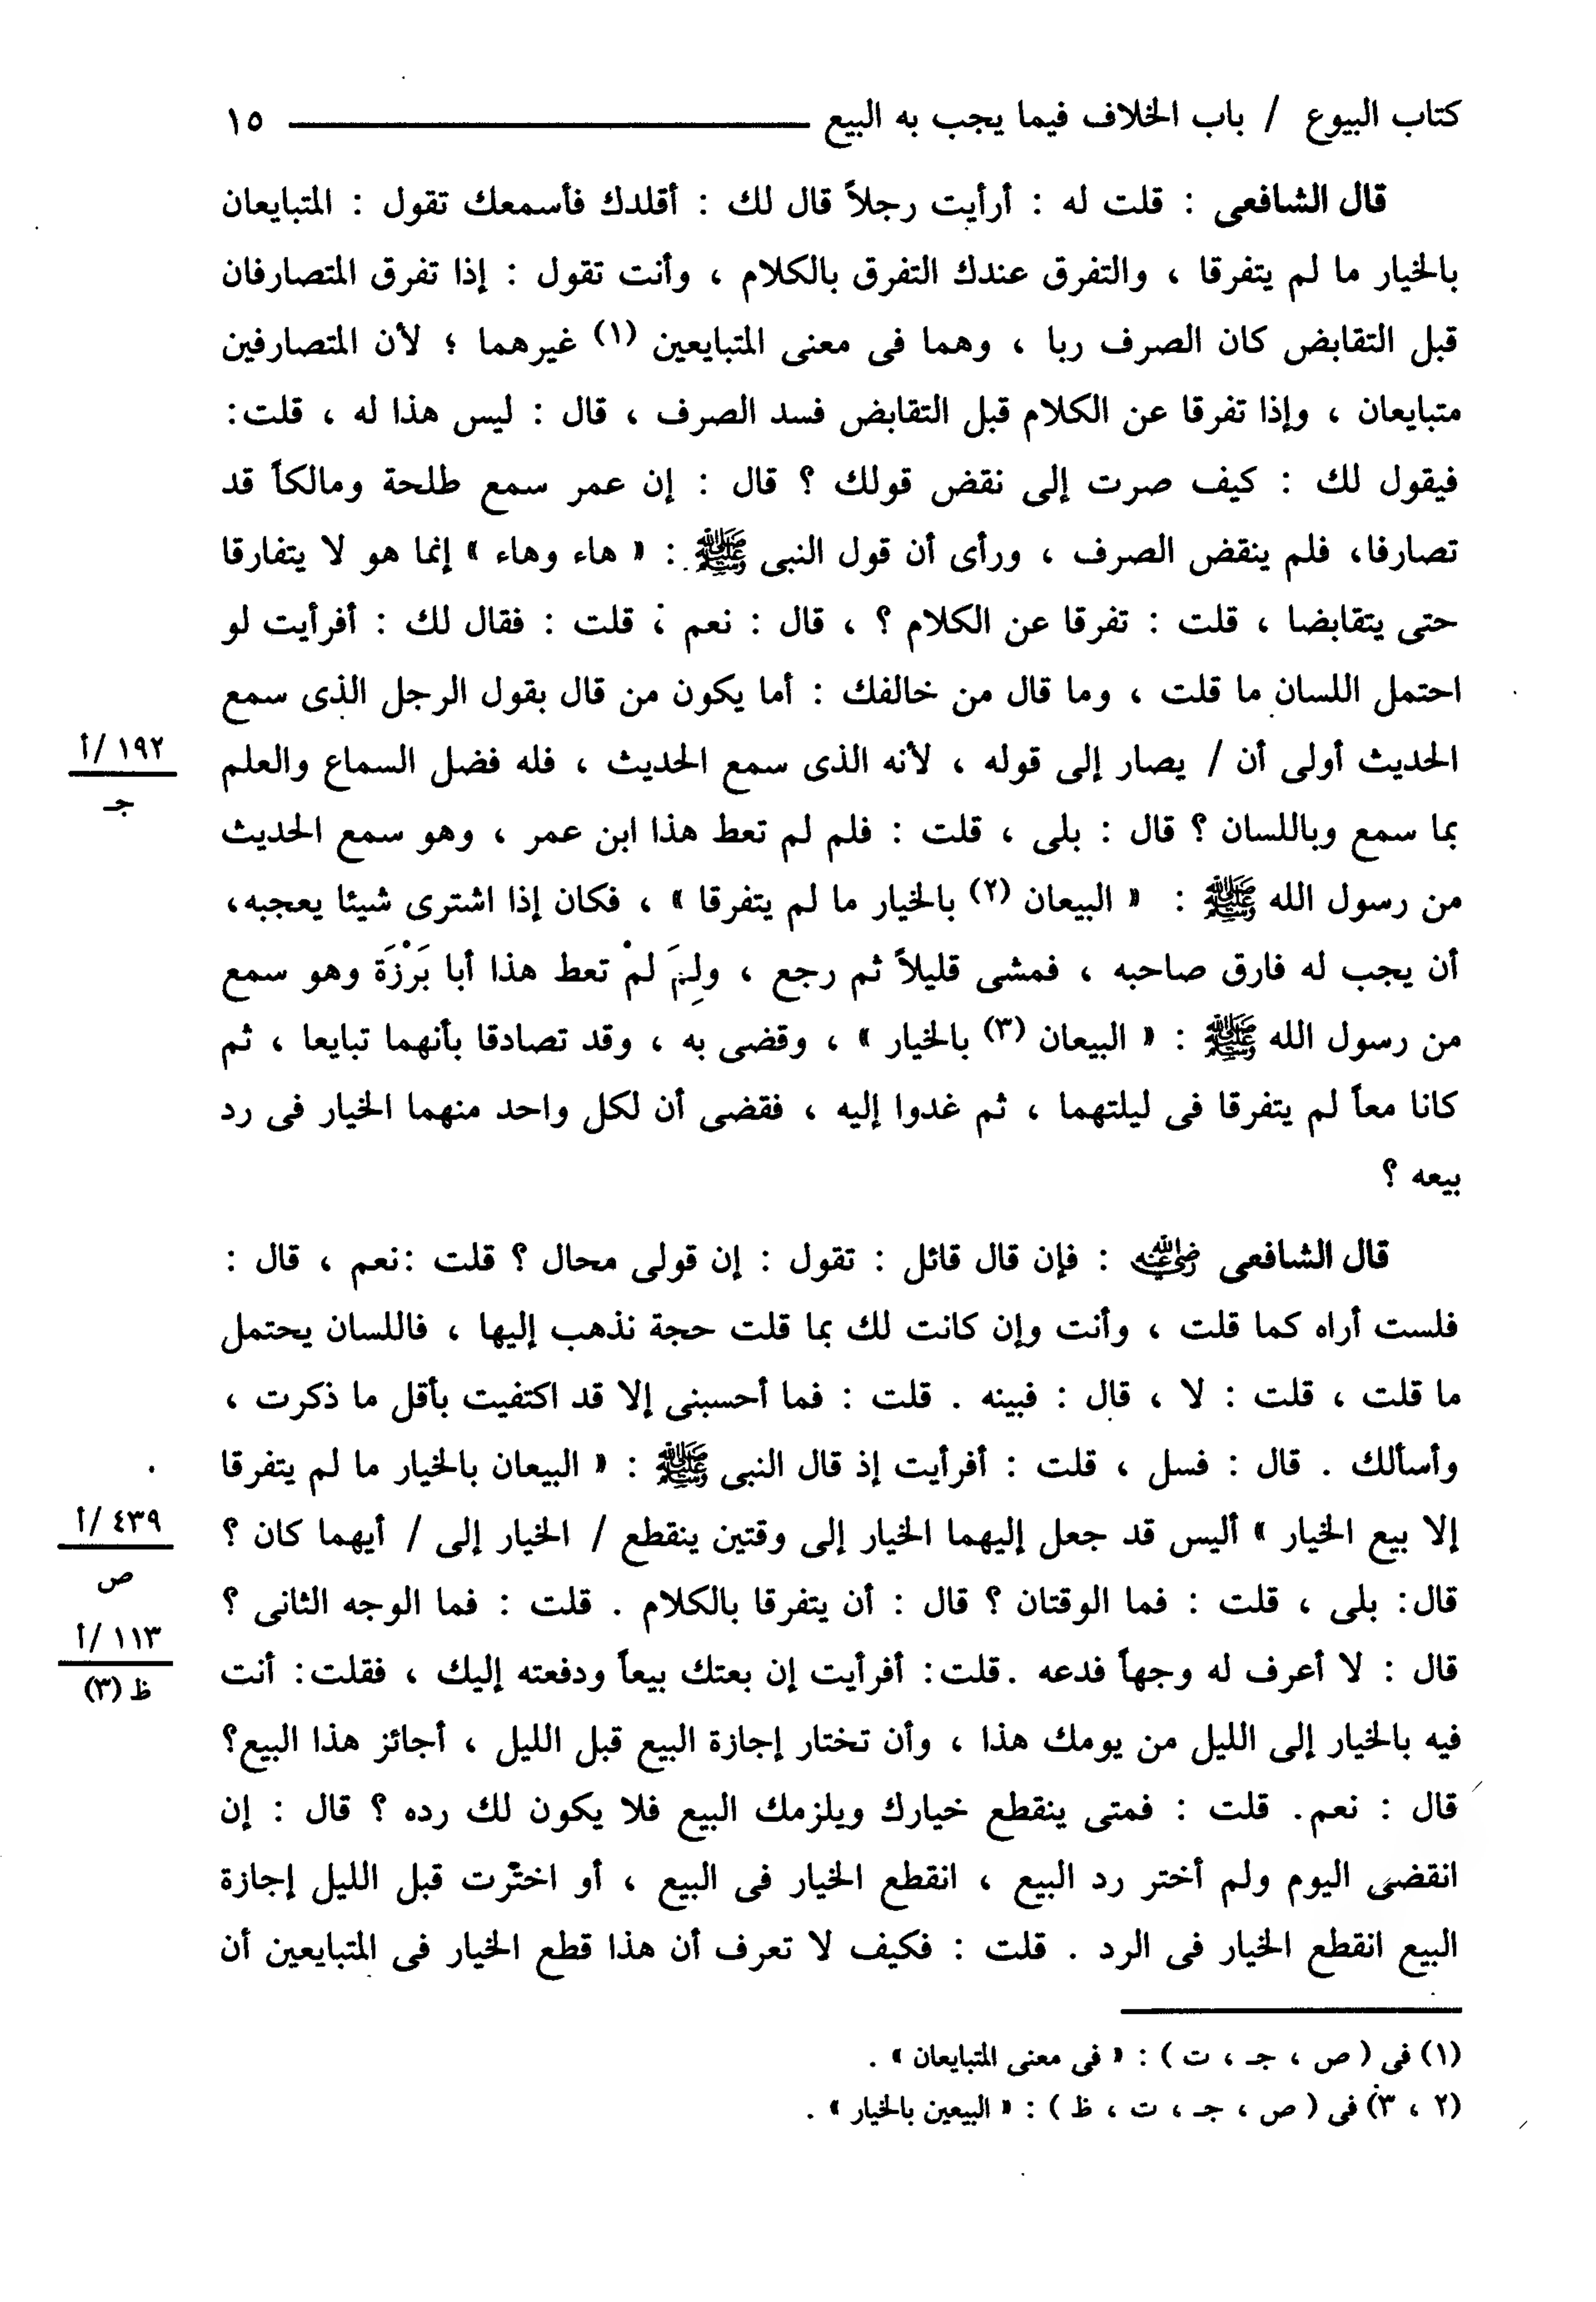 كتاب البيوع / باب الخلاف فيما يجب به البيع ١٥
قال الشافعى : قلت له : أرأيت رجلاً قال لك : أقلدك فأسمعك تقول : المتبايعان
بالخيار ما لم يتفرقا ، والتفرق عندك التفرق بالكلام ، وأنت تقول : إذا تفرق المتصارفان
قبل التقابض كان الصرف ربا ، وهما فى معنى المتبايعين (١) غيرهما ؛ لأن المتصارفين
متبايعان ، وإذا تفرقا عن الكلام قبل التقابض فسد الصرف ، قال : ليس هذا له ، قلت:
فيقول لك : كيف صرت إلى نقض قولك ؟ قال : إن عمر سمع طلحة ومالكاً قد
تصارفا، فلم ينقض الصرف ، ورأى أن قول النبى ﷺ : « هاء وهاء » إنما هو لا يتفارقا
حتى يتقابضا ، قلت : تفرقا عن الكلام ؟ ، قال : نعم ، قلت : فقال لك : أفرأيت لو
احتمل اللسان ما قلت ، وما قال من خالفك : أما يكون من قال بقول الرجل الذى سمع
الحديث أولى أن / يصار إلى قوله ، لأنه الذى سمع الحديث ، فله فضل السماع والعلم
١٩٢ /أ
جـ
بما سمع وباللسان ؟ قال : بلى ، قلت : فلم لم تعط هذا ابن عمر ، وهو سمع الحديث
من رسول الله ﷺ : « البيعان (٢) بالخيار ما لم يتفرقا » ، فكان إذا اشترى شيئا يعجبه،
أن يجب له فارق صاحبه ، فمشى قليلاً ثم رجع ، ولِمَ لمْ تعط هذا أبا بَرْزَة وهو سمع
من رسول الله ﷺ : « البيعان (٣) بالخيار » ، وقضى به ، وقد تصادقا بأنهما تبايعا ، ثم
كانا معاً لم يتفرقا فى ليلتهما ، ثم غدوا إليه ، فقضى أن لكل واحد منهما الخيار فى رد
بيعه ؟
قال الشافعى رضي الله عنه : فإن قال قائل : تقول : إن قولى محال ؟ قلت :نعم ، قال :
فلست أراه كما قلت ، وأنت وإن كانت لك بما قلت حجة نذهب إليها ، فاللسان يحتمل
ما قلت ، قلت : لا ، قال : فبينه . قلت : فما أحسبنى إلا قد اكتفيت بأقل ما ذكرت ،
وأسألك . قال : فسل ، قلت : أفرأيت إذ قال النبى ﷺ : « البيعان بالخيار ما لم يتفرقا
إلا بيع الخيار » أليس قد جعل إليهما الخيار إلى وقتين ينقطع / الخيار إلى / أيهما كان ؟
٤٣٩ /أ
ص
قال: بلى ، قلت : فما الوقتان ؟ قال : أن يتفرقا بالكلام . قلت : فما الوجه الثانى ؟
١١٣ /أ
ظ (٣)
قال : لا أعرف له وجهاً فدعه .قلت: أفرأيت إن بعتك بيعاً ودفعته إليك ، فقلت: أنت
فيه بالخيار إلى الليل من يومك هذا ، وأن تختار إجازة البيع قبل الليل ، أجائز هذا البيع؟
قال : نعم. قلت : فمتى ينقطع خيارك ويلزمك البيع فلا يكون لك رده ؟ قال : إن
انقضى اليوم ولم أختر رد البيع ، انقطع الخيار فى البيع ، أو اخترت قبل الليل إجازة
البيع انقطع الخيار فى الرد . قلت : فكيف لا تعرف أن هذا قطع الخيار فى المتبايعين أن
(١) فى ( ص ، جـ ، ت ) : « فى معنى المتبايعان » .
(٢ ، ٣) فى ( ص ، جـ ، ت ، ظ ) : « البيعين بالخيار » .